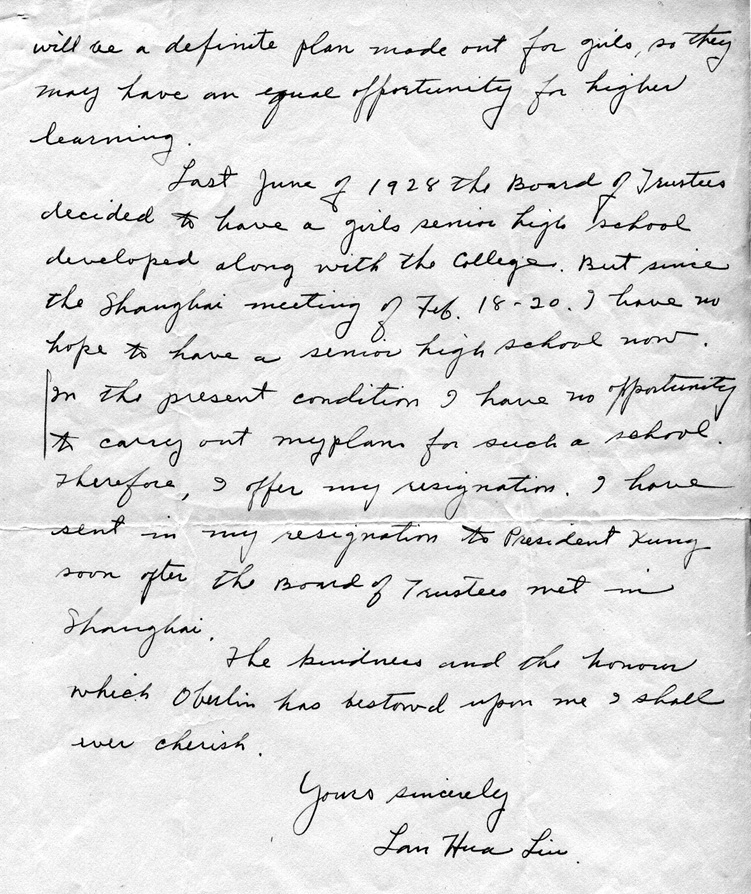 will be a definite plan made out for girls, so they
may have an equal opportunity for higher
learning.
Last June of 1928 the Board of Trustees
decided to have a girls senior high school
developed along with the College. But since
the Shanghai meeting of Feb. 18-20. I have no
hope to have a senior high school now.
In the present condition I have no opportunity
to carry out my plans for such a school.
Therefore, I offer my resignation. I have
sent in my resignation to President Kung
soon after the Board of Trustees met in
Shanghai.
The kindness and the honour
which Oberlin has bestowd upon me I shall
ever cherish.
Yours sincerely
Lan Hua Liu.